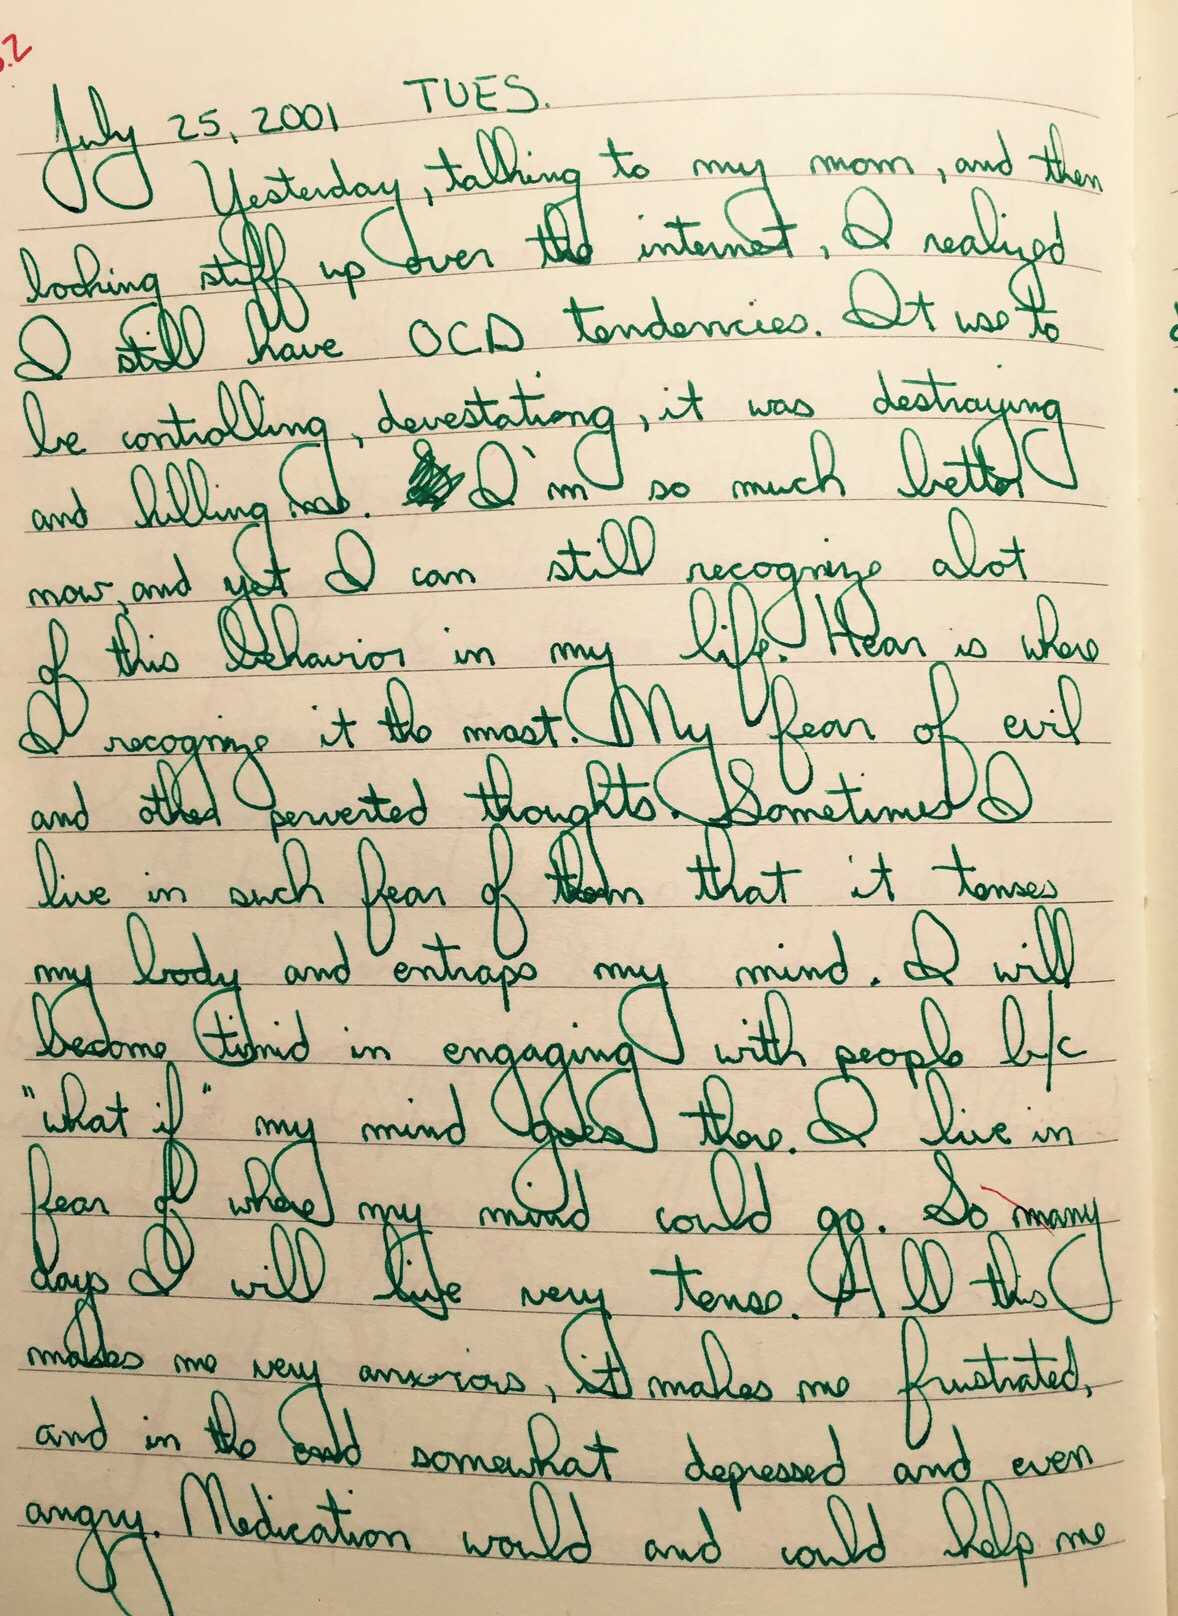 July 25, 2001 TUES.
Yesterday, talking to my mom, and then
looking stuff up over the internet, I realized
I still have OCD tendencies. It use to
be controlling, devestationg, it was destroying
and killing me. I'm so much better
now, and yet I can still recognize alot
of this behavior in my life. Hear is where
I recognize it the most. My fear of evil
and other perverted thoughts. Sometimes I
live in such fear of them that it tenses
my body and entraps my mind. I will
become timid in engaging with people b/c
"what if" my mind goes there. I live in
fear of where my mind could go. So many
days I will live very tense. All this
makes me very anxious, it makes me frustrated,
and in the end somewhat depressed and even
angry. Medication would and could help me